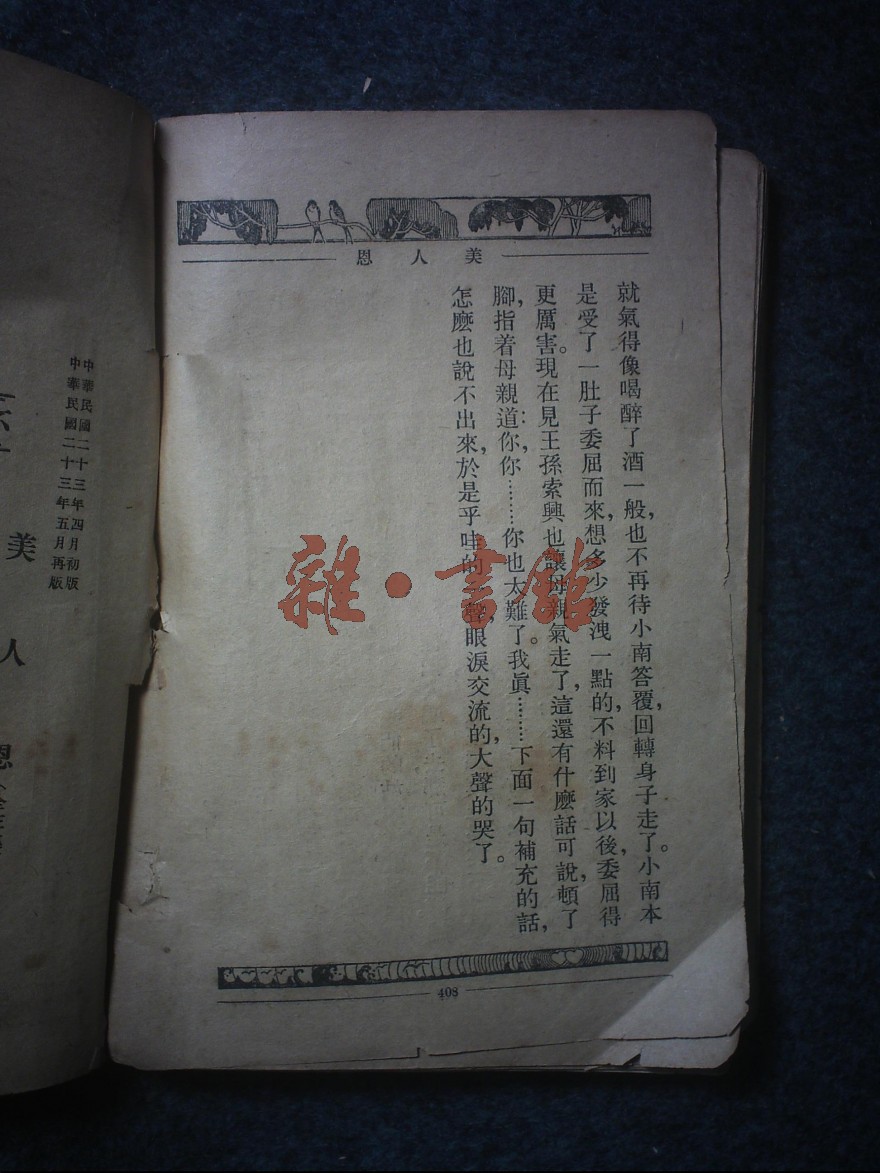 美人恩
就氣得像喝醉了酒一般，也不再待小南答覆，回轉身子走了。小南本
是受了一肚子委屈而來，想多少發洩一點的，不料到家以後，委屈得
更厲害。現在見王孫索興也讓母親氣走了，這還有什麼話可說，頓了
腳，指着母親道：你，你………你也太難了。我眞………下面一句補充的話，
怎麼也說不出來，於是乎哇的一聲，眼淚交流的，大聲的哭了。
408
中華民國二十三年四月初版
中華民國二十三年五月再版
美人恩
雜·書館